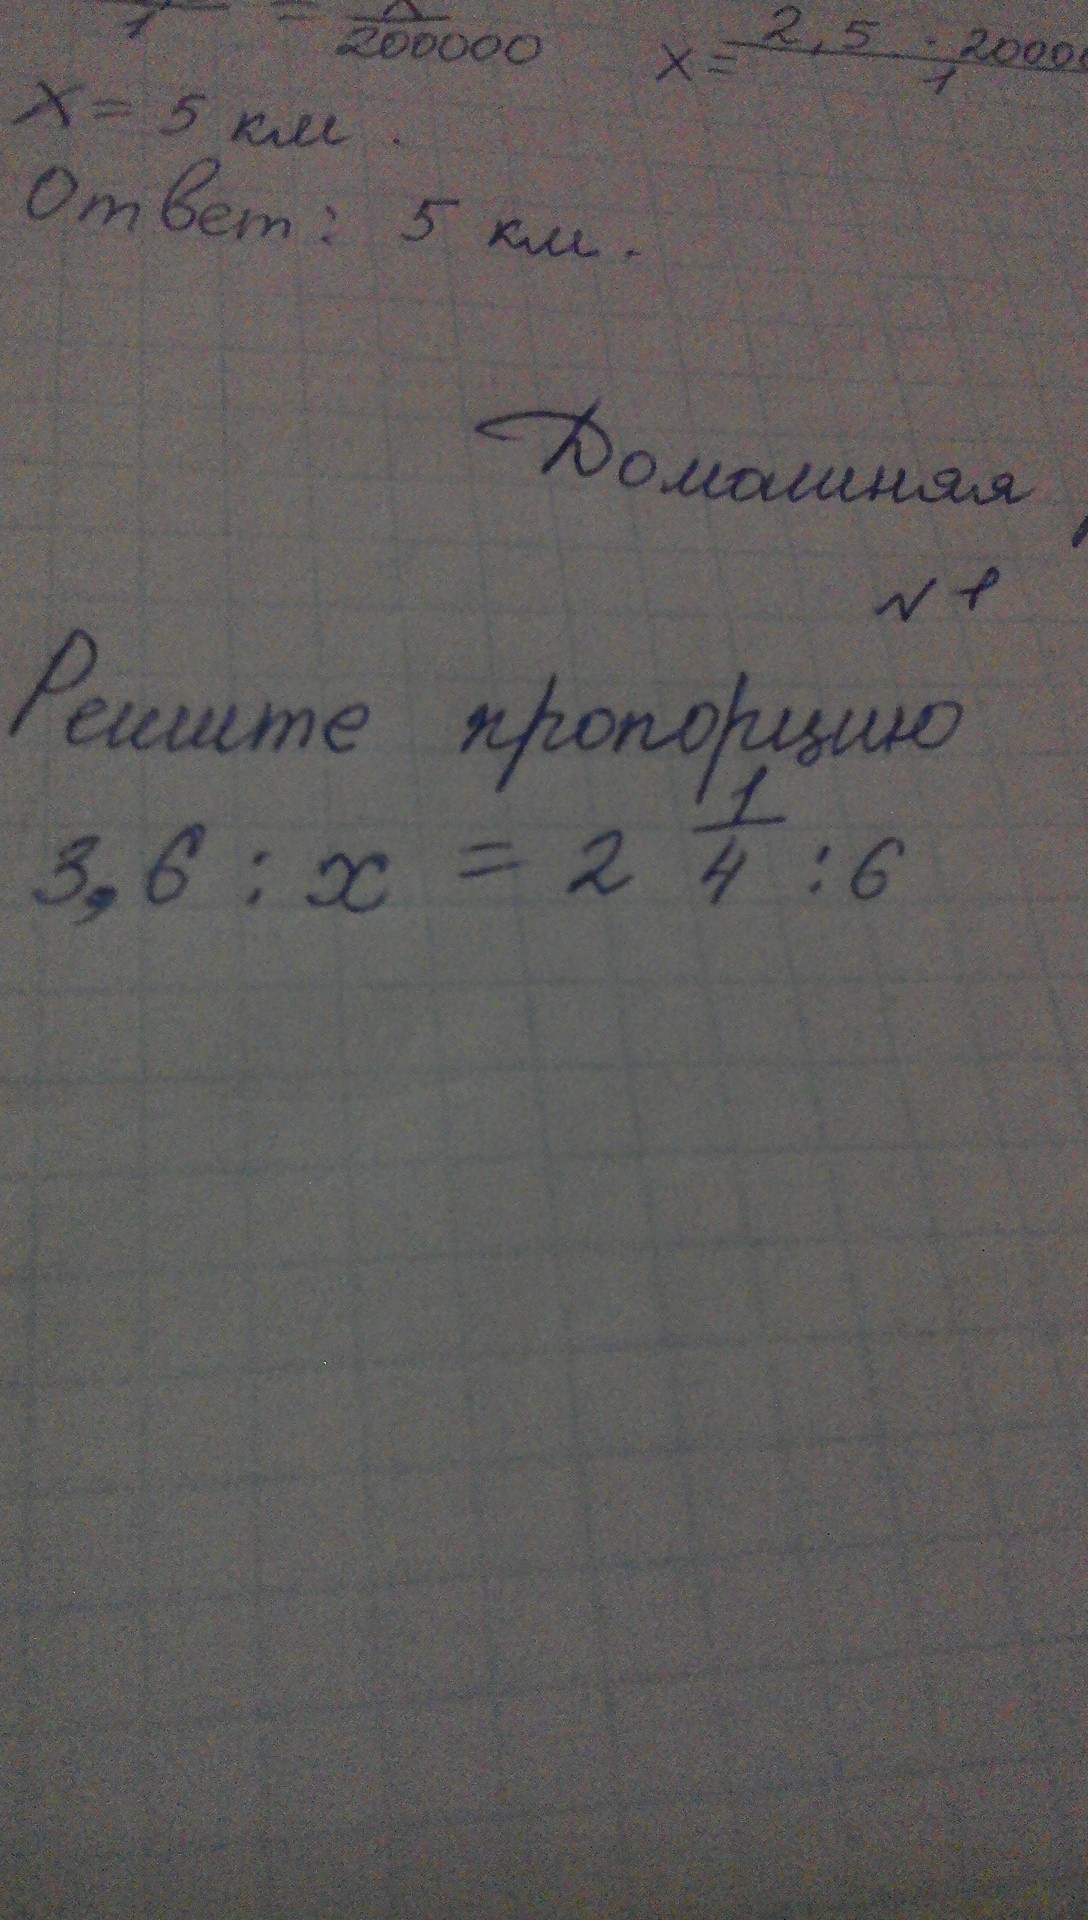 1 = x/200000 x = 2,5 · 2000
1
x = 5 км.
Ответ: 5 км.
Домашняя
№ 1
Решите пропорцию
3,6 : x = 2 1/4 : 6